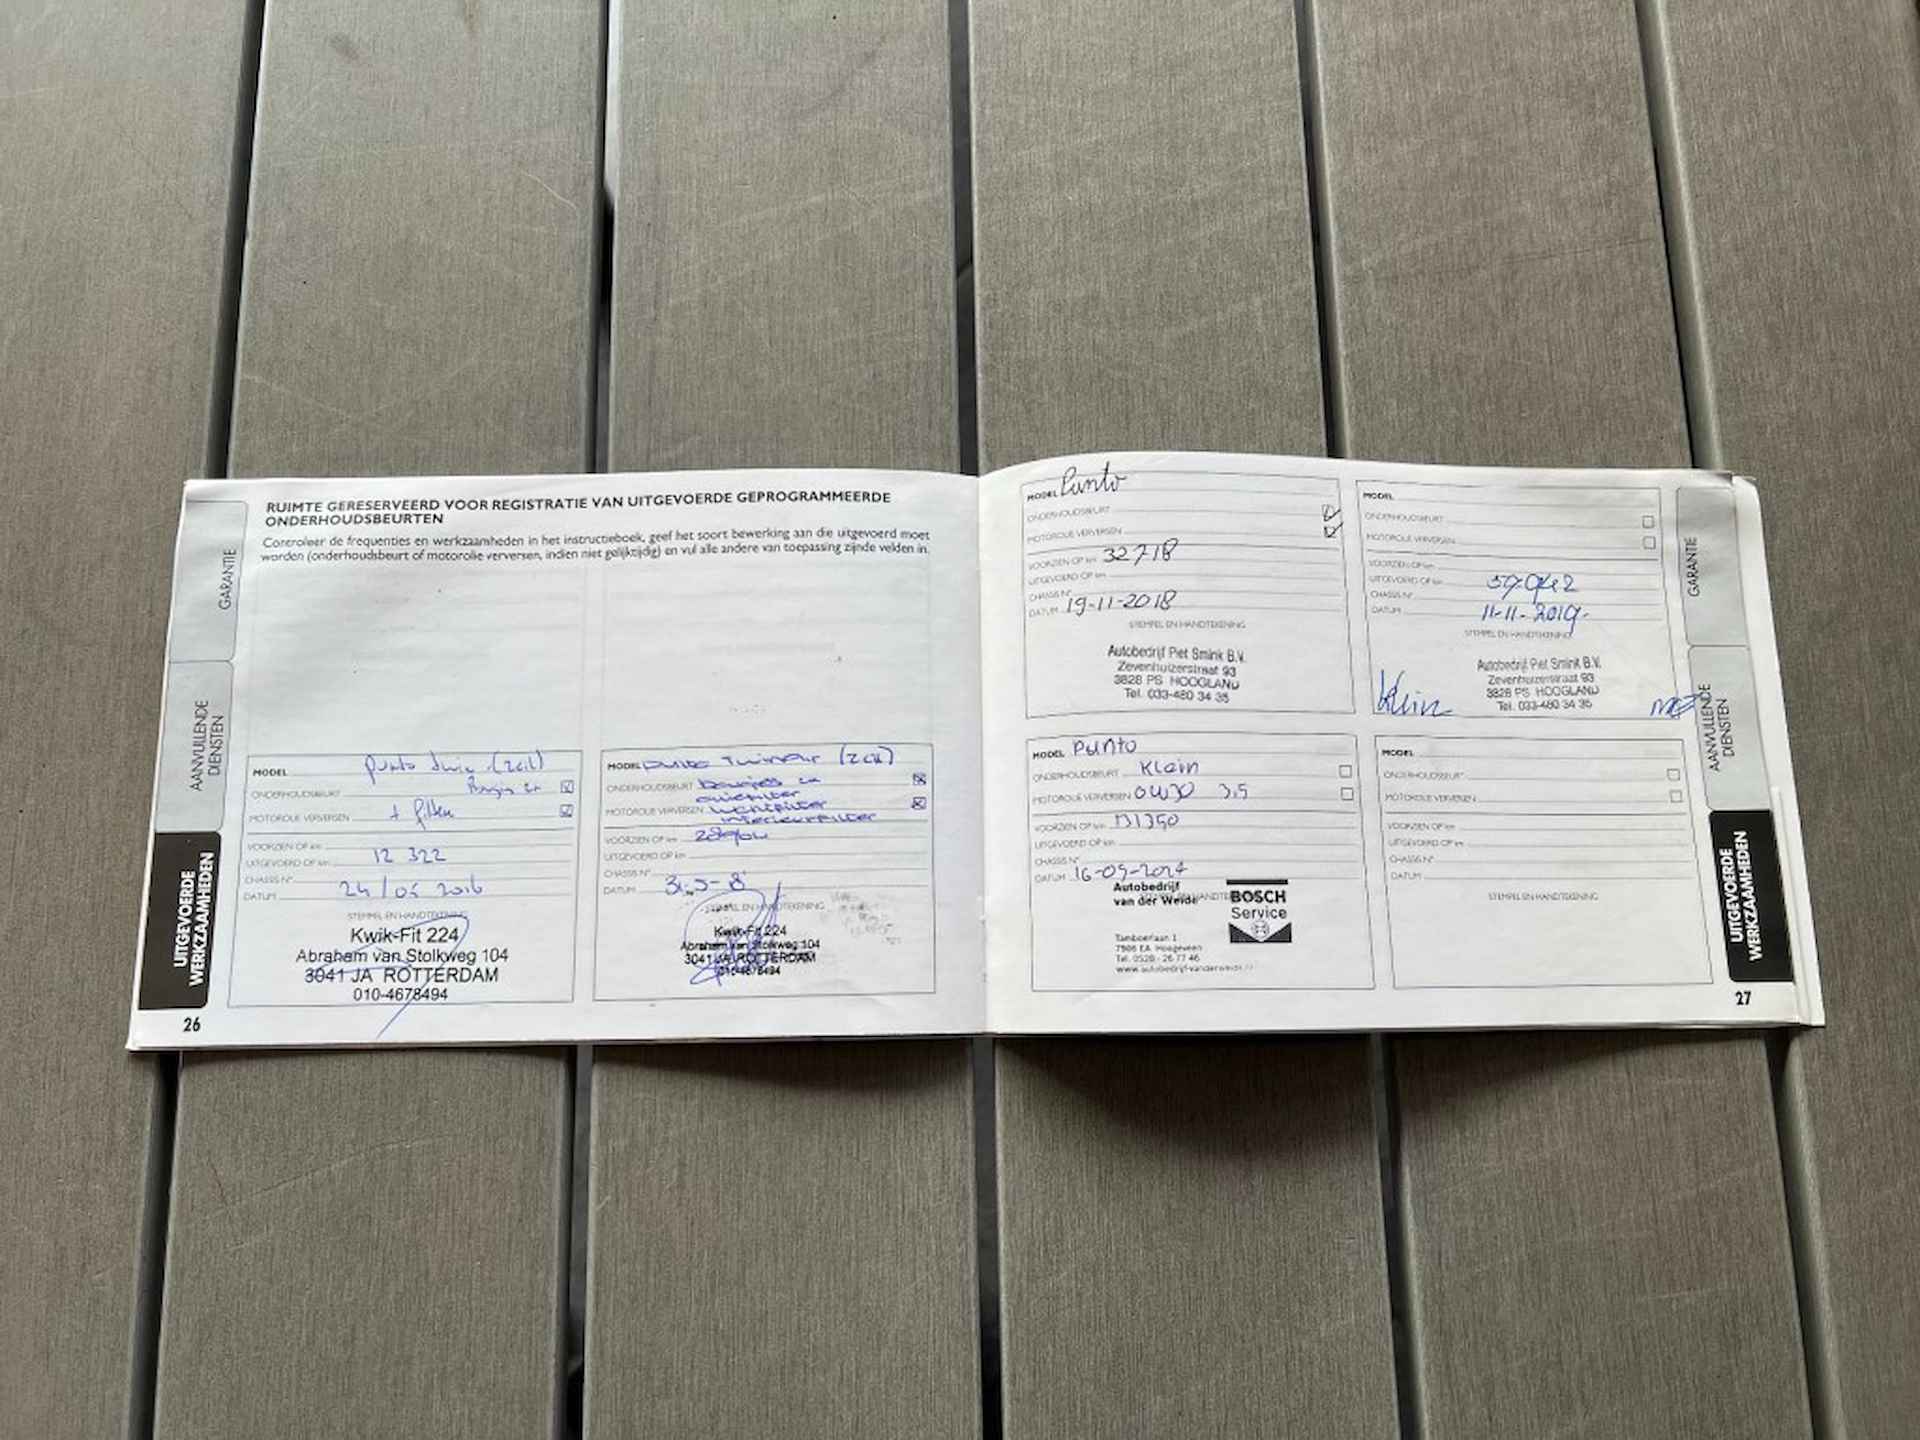 RUIMTE GERESERVEERD VOOR REGISTRATIE VAN UITGEVOERDE GEPROGRAMMEERDE
ONDERHOUDSBEURTEN
Controleer de frequenties en werkzaamheden in het instructieboek, geef het soort bewerking aan die uitgevoerd moet
worden (onderhoudsbeurt of motorolie verversen, indien niet gelijktijdig) en vul alle andere van toepassing zijnde velden in.
GARANTIE
AANVULLENDE
DIENSTEN
UITGEVOERDE
WERKZAAMHEDEN
26
MODEL Punto
ONDERHOUDSBEURT
MOTOROLIE VERVERSEN + filter
VOORZIEN OP km
UITGEVOERD OP km 12 322
CHASSIS N°
DATUM 24/05 2016
STEMPEL EN HANDTEKENING
Kwik-Fit 224
Abraham van Stolkweg 104
3041 JA ROTTERDAM
010-4678494
MODEL Punto Twinair
ONDERHOUDSBEURT
oliefilter
MOTOROLIE VERVERSEN luchtfilter
interieurfilter
VOORZIEN OP km
UITGEVOERD OP km
CHASSIS N°
DATUM
STEMPEL EN HANDTEKENING
Kwik-Fit 224
Abraham van Stolkweg 104
3041 JA ROTTERDAM
010-4678494
MODEL Punto
ONDERHOUDSBEURT
MOTOROLIE VERVERSEN
VOORZIEN OP km 32718
UITGEVOERD OP km
CHASSIS N°
DATUM 19-11-2018
STEMPEL EN HANDTEKENING
Autobedrijf Piet Smink B.V.
Zevenhuizerstraat 93
3828 PS HOOGLAND
Tel. 033-480 34 35
MODEL
ONDERHOUDSBEURT
MOTOROLIE VERVERSEN
VOORZIEN OP km
UITGEVOERD OP km
CHASSIS N°
DATUM 11-11-2019-
STEMPEL EN HANDTEKENING
Autobedrijf Piet Smink B.V.
Zevenhuizerstraat 93
3828 PS HOOGLAND
Tel. 033-480 34 35
Klein
MODEL Punto
ONDERHOUDSBEURT Klein
MOTOROLIE VERVERSEN 0W30 3,5
VOORZIEN OP km
UITGEVOERD OP km
CHASSIS N°
DATUM 16-09-2024
STEMPEL EN HANDTEKENING
Autobedrijf
van der Weide
BOSCH
Service
Tamboerlaan 1
7906 EA Hoogeveen
Tel. 0528 - 26 77 46
MODEL
ONDERHOUDSBEURT
MOTOROLIE VERVERSEN
VOORZIEN OP km
UITGEVOERD OP km
CHASSIS N°
DATUM
STEMPEL EN HANDTEKENING
GARANTIE
AANVULLENDE
DIENSTEN
UITGEVOERDE
WERKZAAMHEDEN
27